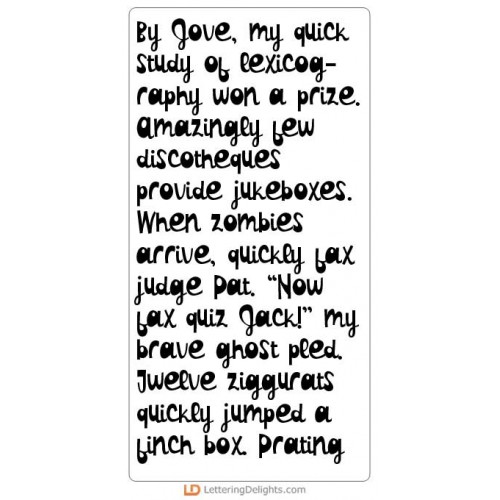 By Jove, my quick
study of lexicog-
raphy won a prize.
Amazingly few
discotheques
provide jukeboxes.
When zombies
arrive, quickly fax
judge Pat. “Now
fax quiz Jack!” my
brave ghost pled.
Twelve ziggurats
quickly jumped a
finch box. Prating
LD LetteringDelights.com